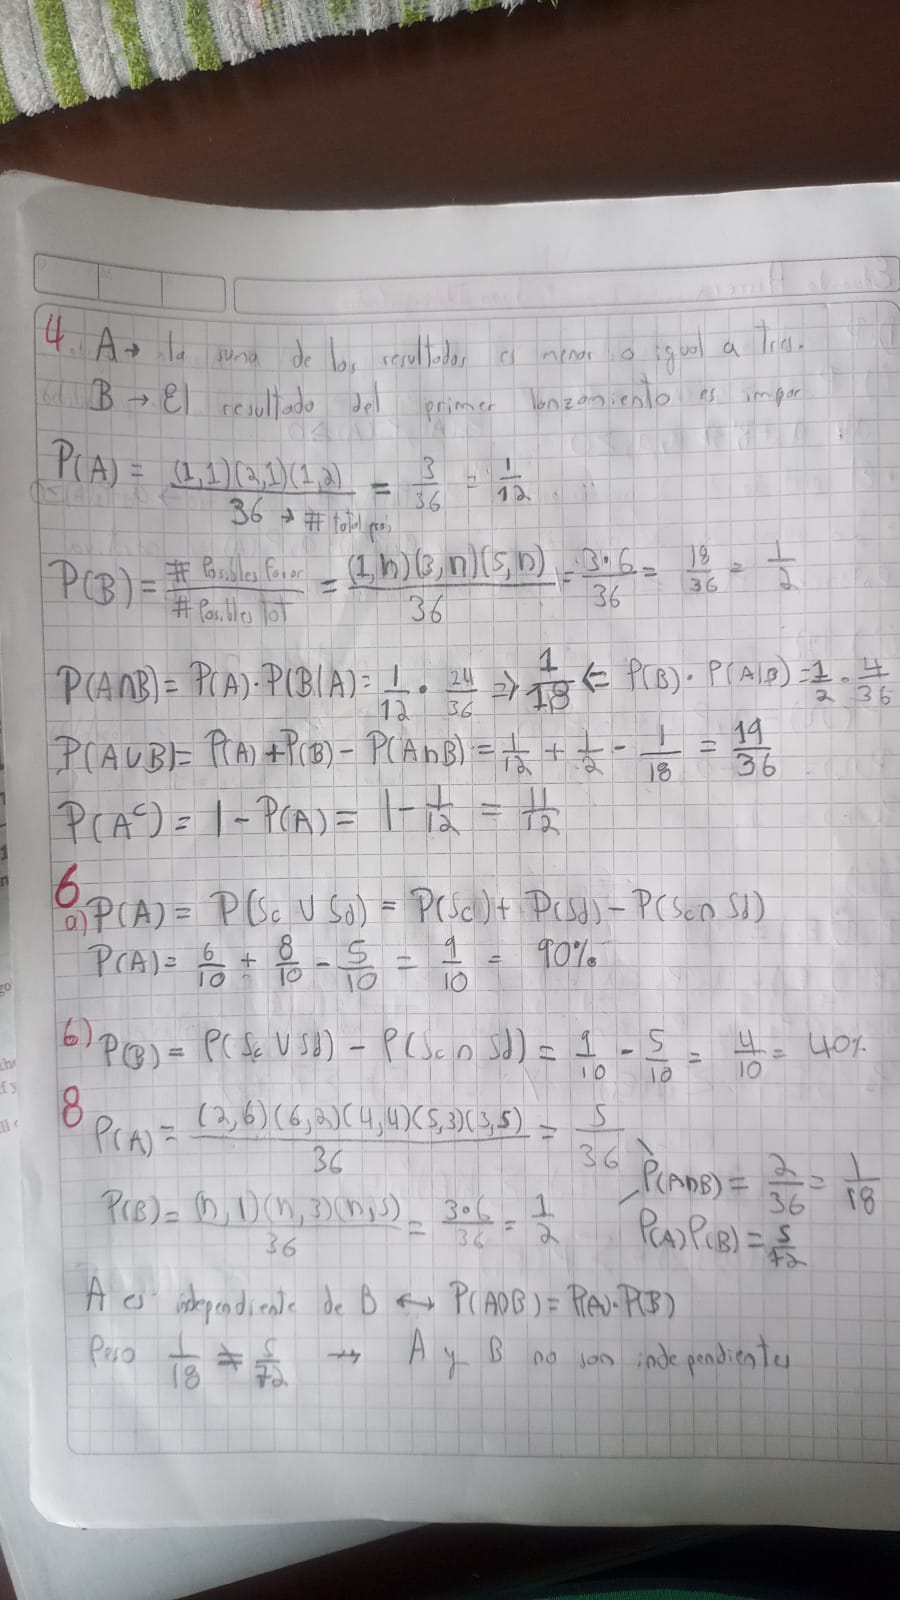 4. A → la suma de los resultados es menor o igual a Tres.
B → El resultado del primer lanzamiento es impar
P(A) = (1,1)(2,1)(1,2) / 36 → # total posi = 3/36 = 1/12
P(B) = # Posibles favor / # Posibles tot = (1,n)(3,n)(5,n) / 36 = 3•6/36 = 18/36 = 1/2
P(A∩B) = P(A)·P(B|A) = 1/12 · 24/36 ⇒ 1/18 ⇐ P(B)·P(A|B) = 1/2 · 4/36
P(A∪B) = P(A) + P(B) - P(A∩B) = 1/12 + 1/2 - 1/18 = 19/36
P(Aᶜ) = 1 - P(A) = 1 - 1/12 = 11/12
6
a) P(A) = P(Sc ∪ Sd) = P(Sc) + P(Sd) - P(Sc∩Sd)
P(A) = 6/10 + 8/10 - 5/10 = 9/10 = 90%
b) P(B) = P(Sc ∪ Sd) - P(Sc ∩ Sd) = 9/10 - 5/10 = 4/10 = 40%
8
P(A) = (2,6)(6,2)(4,4)(5,3)(3,5) / 36 = 5/36
P(A∩B) = 2/36 = 1/18
P(B) = (n,1)(n,3)(n,5) / 36 = 3•6/36 = 1/2
P(A)P(B) = 5/72
A es independiente de B ↔ P(A∩B) = P(A)·P(B)
Pero 1/18 ≠ 5/72 → A y B no son independientes